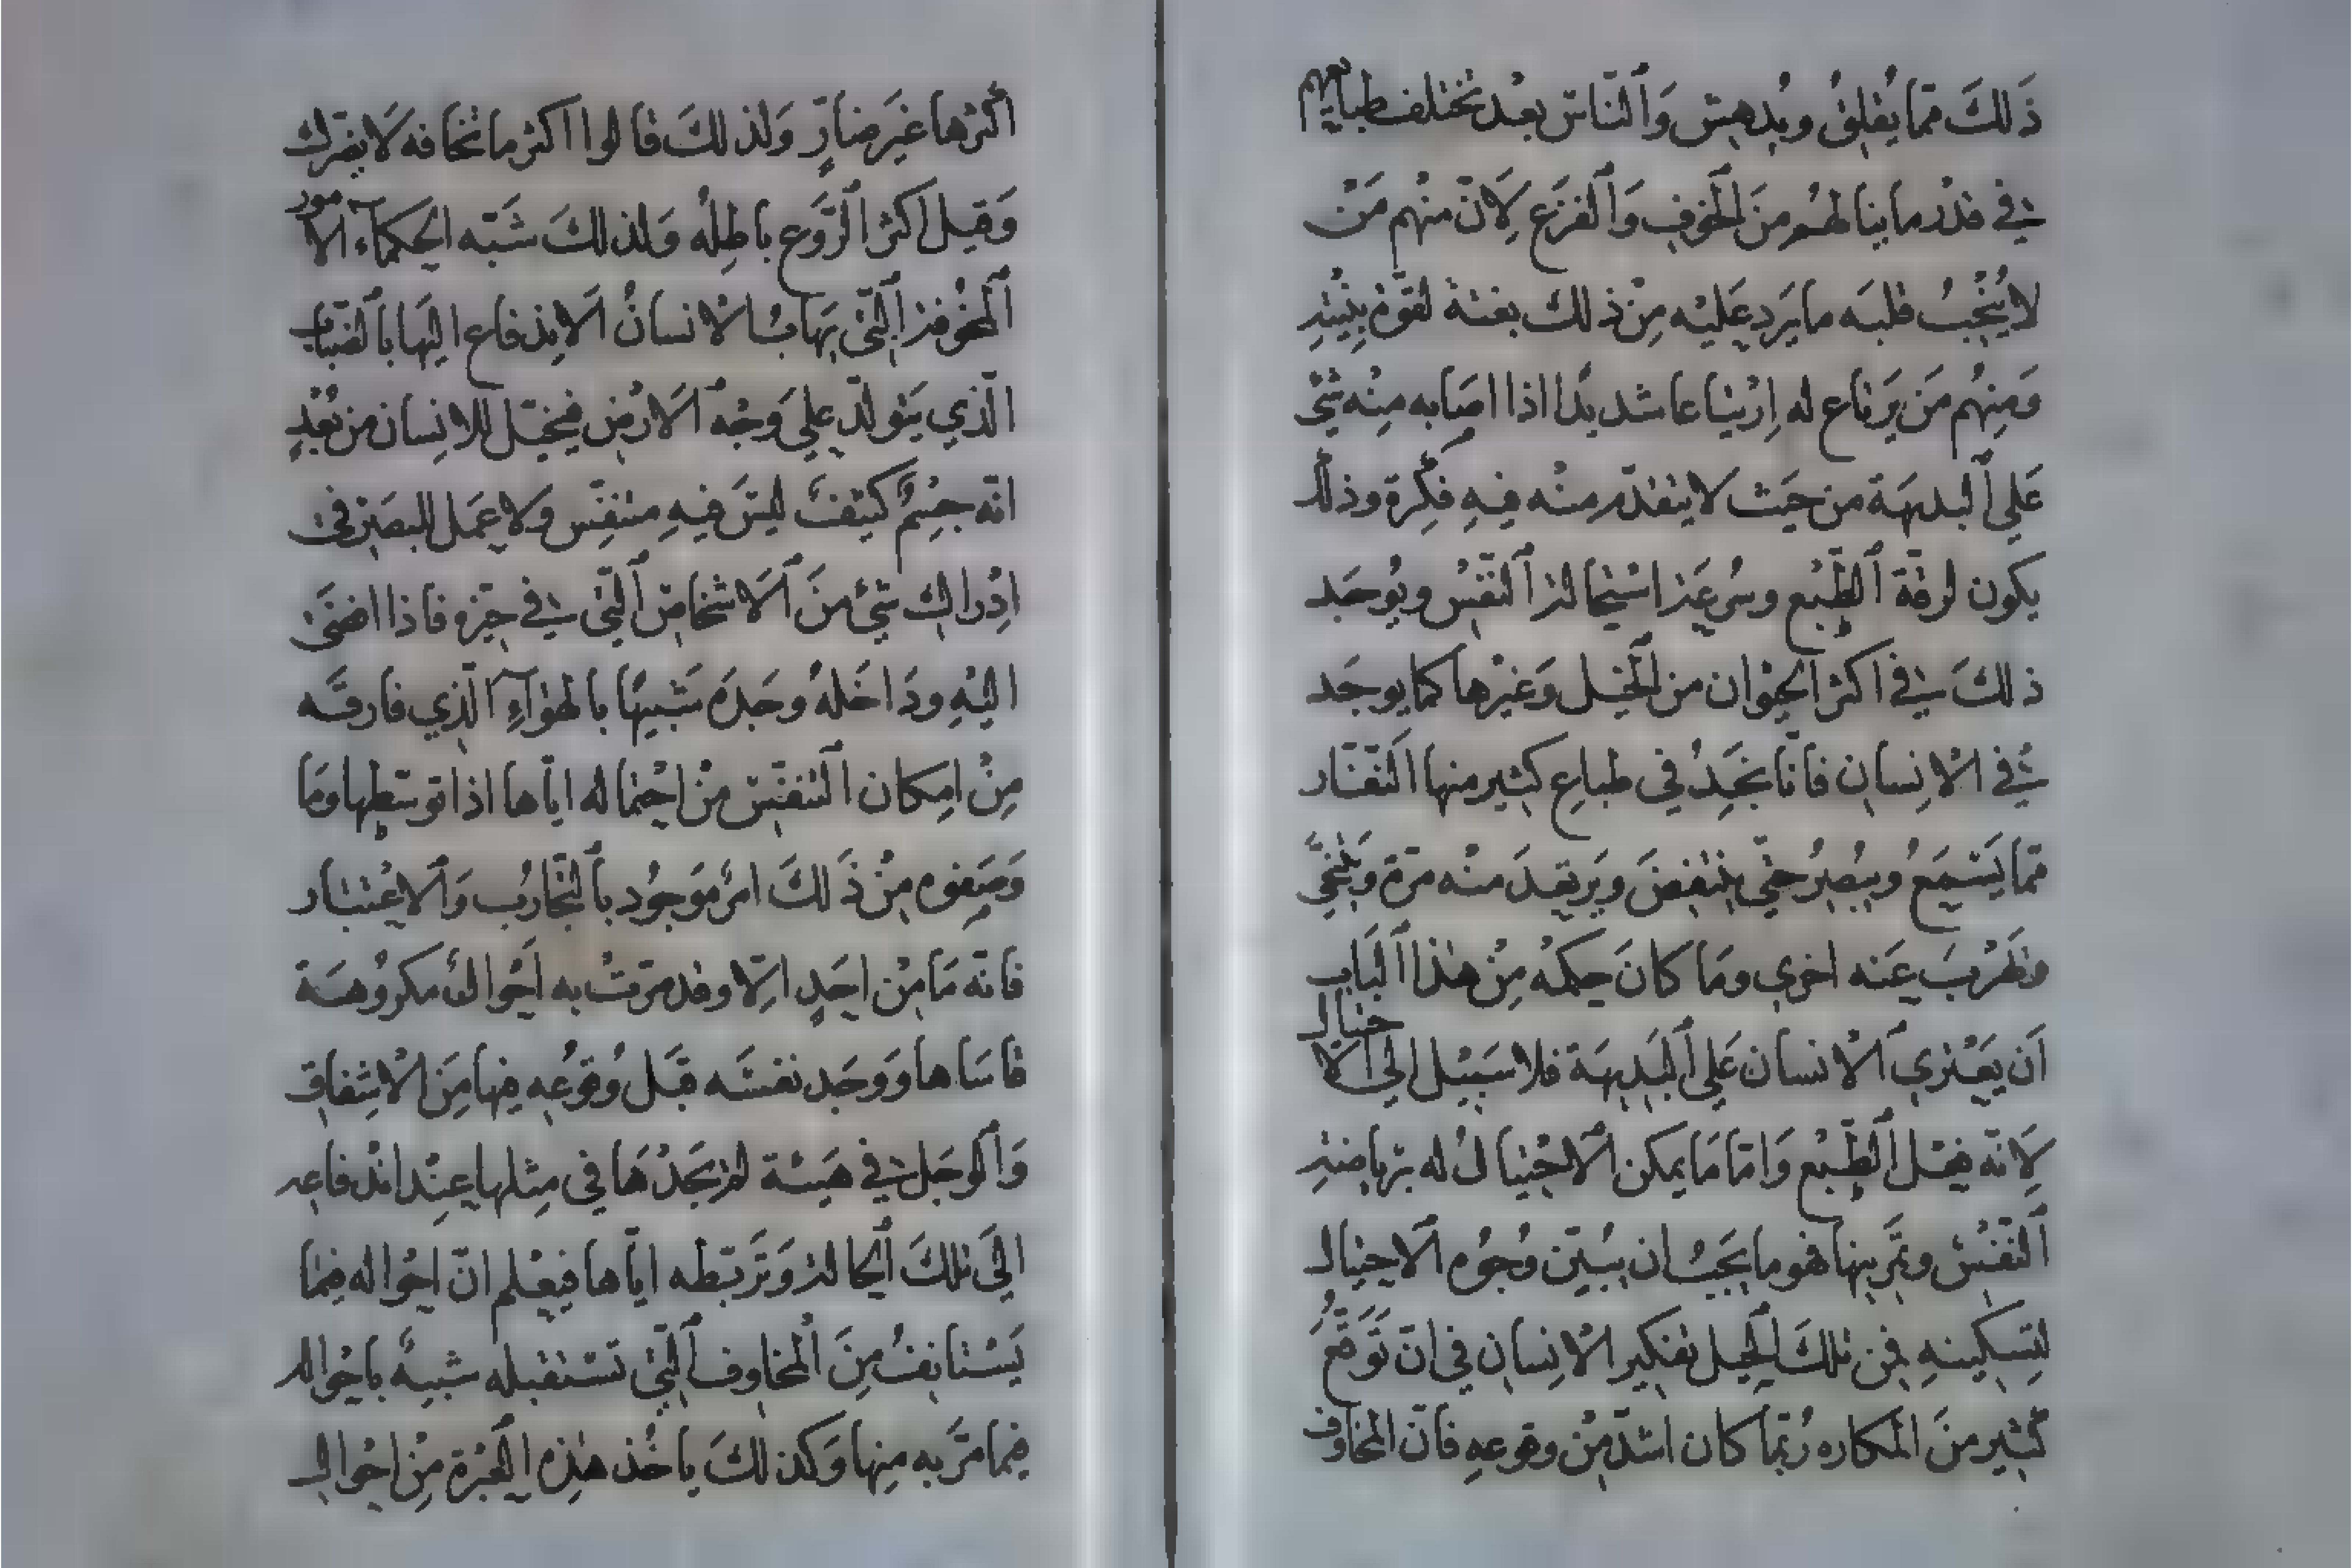 ذَلكَ ممّا يُقلِقُ ويُدهِش وَاَلنّاسُ بعْد تختلف طبايعهم
في قدْر ما ينالهُم منَ اَلخوفِ وَاَلفزَع لِاَنّ منْهم مَنْ
لا يُنْخَبُ قلبَه ما يَرد عَليْه مِنْ ذلك بغتة لقوّة بِنْيتِهِ
وَمنِهُم مَن يَرتاع له اِرْتياعا شديدًا اذا اصَابه مِنْه شيْ
عَلي اَلبديهَة من حَيْث لا يتقدّم منْه فيهِ فِكرة وذلك
يكون لرقّة اَلطّبْع وسُرعَة اسْتِحالة اَلنّفْسِ ويُوجَد
ذلكَ في اكثر الحيْوان من اَلخيْل وَغيْرها كما يوجَد
في الاْنِسان فانّا نجَِدُ في طباعِ كثير منها اَلنّفَار
ممّا يَسْمَعُ ويبُصِرُ حتّي ينْتفِضَ ويَرتعِدَ منْه مرّة وَيتنحّي
وَيَهْرُبَ عَنه اخرى ومَا كانَ حكمْه مِنْ هٰذا اَلبَاب
اَن يعَْتري اَلاْنسان عَلي اَلبَديهَة فلا سَبيْل الي اَلاحتيال
لِاَنّه فعْل اَلطّبْع وَامّا مَا يمكن اَلاحْتيالُ له برْياضَةِ
اَلنّفْسِ وتمْرينها فهو ما يجَبُ ان نبُيّن وُجُوه اَلاحتيال
لتِسْكينهِ فمن تلكَ اَلحِيل تفكير الاْنِسان في انّ تَوَقّعَُ
كثير منَ المكاره رُبّما كان اشدّ مِنْ وقوعهِ فانّ المخاوف
أكثرها غيَر ضارٍّ وَلذلكَ قالوا اكثر ما تخافه لَا يضرّك
وَقيل اكثر اَلرَّوع باطِلُه وَلذلكَ شَبّه الحكماَء الاُمور
اَلمخُوفة اَلتّي يهَابُ الاْنسانُ اَلاندفاع اليْهَا باَلضّباب
الّذي يتَولّد عليَ وَجْه اَلارْض فيخيّل للانِسان من بُعْدٍ
انّه جِسْمٌ كثيفٌ ليْسَ فيهِ متنفّس وَلا عمَل للبصَر في
اِدْراك شيْ منَ اَلاَشخاصِ اَلتّي في حيّزه فاذا افضَى
اليْهِ ودَاخَلهُ وجَدَه شَبيهًا بالهْوَآءِ اَلّذي فارقَه
مِنْ امِكان اَلتنفّس مِنْ احْتماله ايّاها اذا توسّطها ومَا
وَصَفوه مِنْ ذَلكَ امرٌ موَجُود باَلتّجارُب وَاَلاعْتبار
فانّه مَا مِنْ احَدٍ الِاّ وقد مرّتْ به اَحْوالٌ مكروُهَة
قاسَاها ووَجَد نفسَه قبَل وُقوُعِه فيها مِنَ الاْشِفاق
وَاَلوجَل في هَيئة لم يجَدْهَا في مثِلها عِنْد انْدفاعه
اليَ تلكَ اَلحالة وَتَوَسّطه ايّاها فيعْلم انّ احْواله فيما
يَسْتانِفُ مِنَ اَلمخاوف اَلتّي تسْتقبله شبيهٌ باحْواله
فيما مرَّ به منِها وَكذلكَ ياخُذ هٰذِه اَلعِبْرة مِنْ احْوال